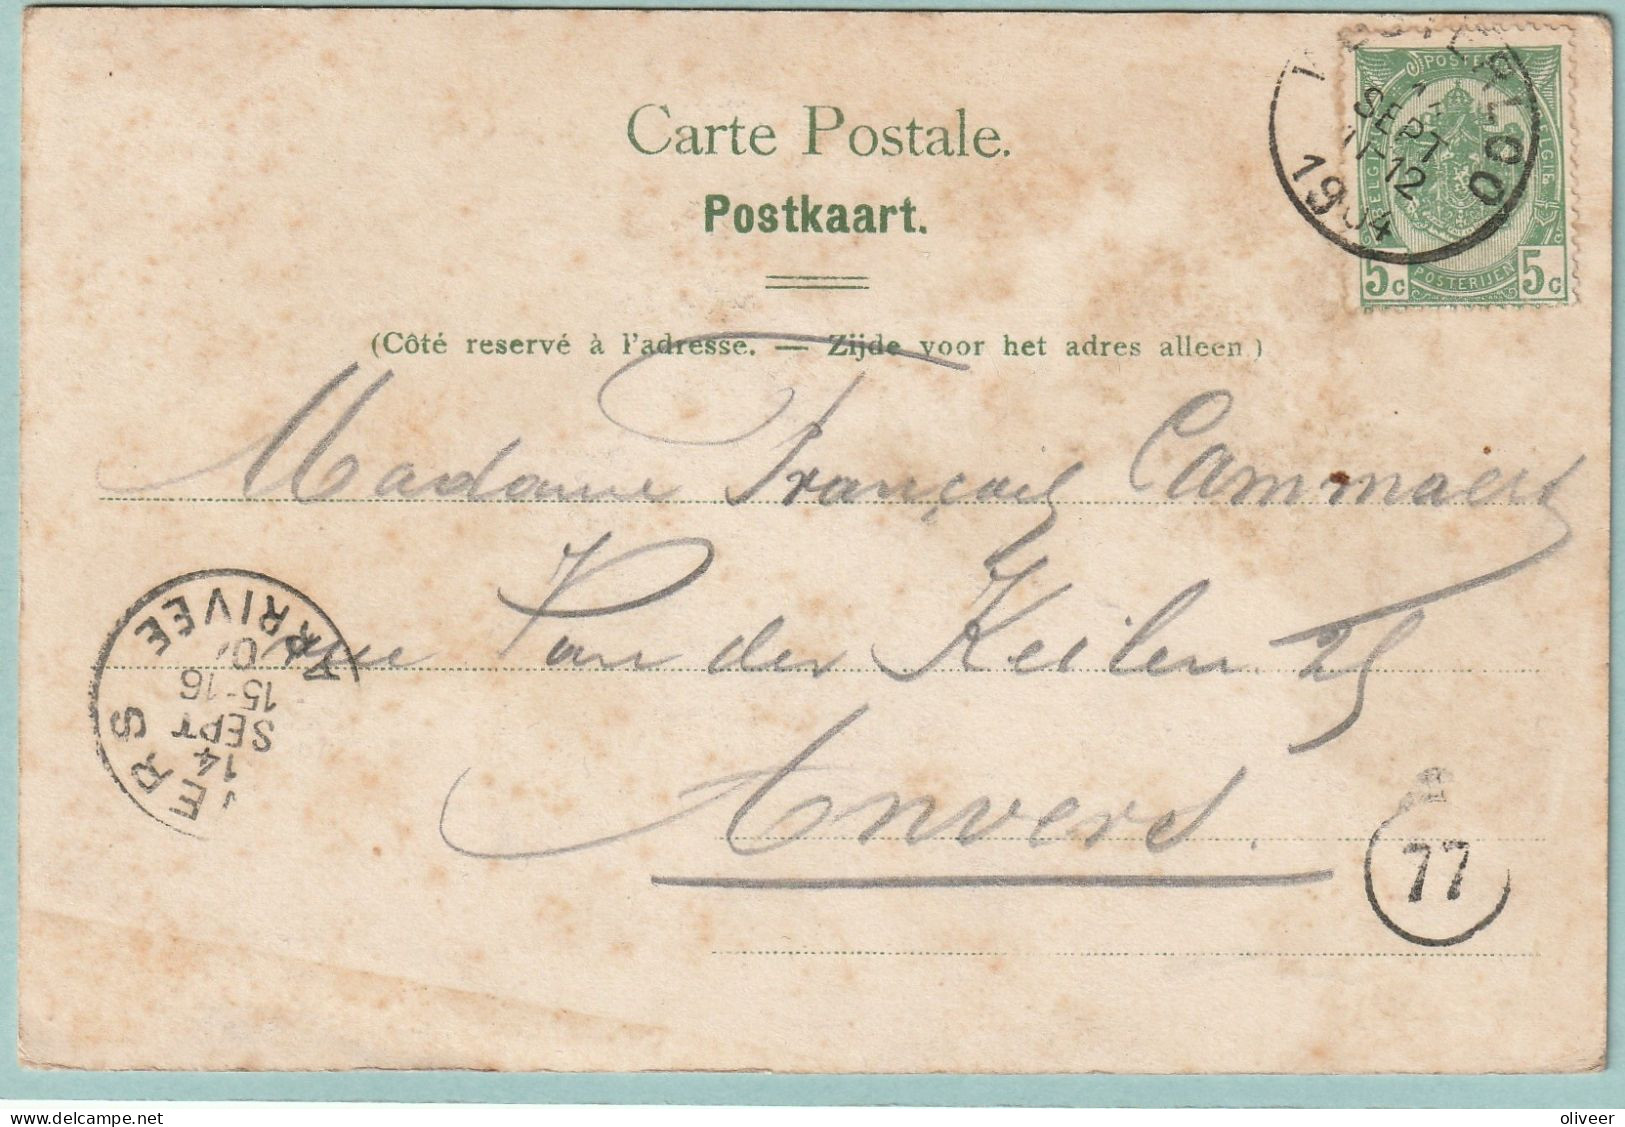 Carte Postale.
Postkaart.
(Côté reservé à l'adresse. — Zijde voor het adres alleen.)
POSTERIJEN
5c 5c
SEPT
11-12
1904
Madame François Cammaert
rue Van der Keilen 25
Anvers.
ARRIVEE
15-16
SEPT
14
ERS
77
delcampe.net
oliveer